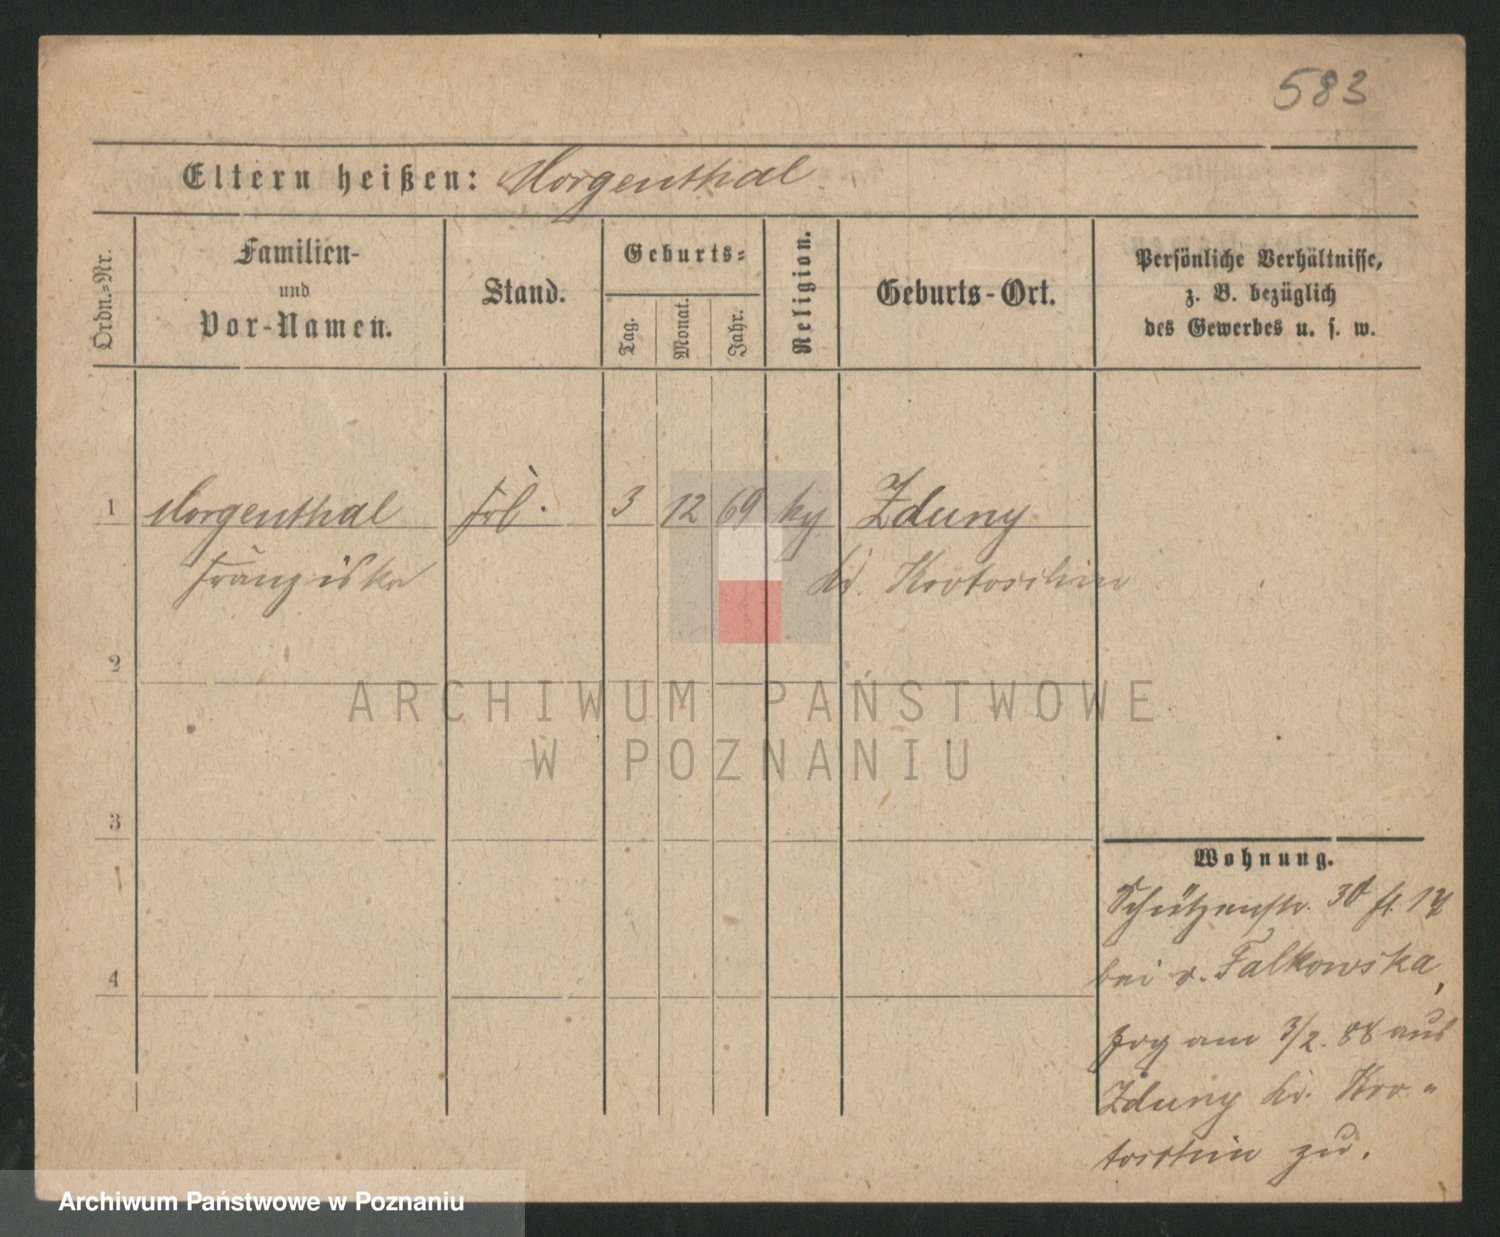 583
Eltern heißen: Morgenthal
Ordn.-Nr.
Familien-
und
Vor-Namen.
Stand.
Geburts-
Tag.
Monat.
Jahr.
Religion.
Geburts-Ort.
Persönliche Verhältnisse,
z. B. bezüglich
des Gewerbes u. s. w.
1 Morgenthal Frl. 3 12 69 Zduny
Franziska Kr. Krotoschin
2
3
4
Wohnung.
Schützenstr. 30
bei v. Falkowska,
zog am 3/2. 88 aus
Zduny Kr. Kro-
toschin zu.
ARCHIWUM PAŃSTWOWE
W POZNANIU
Archiwum Państwowe w Poznaniu